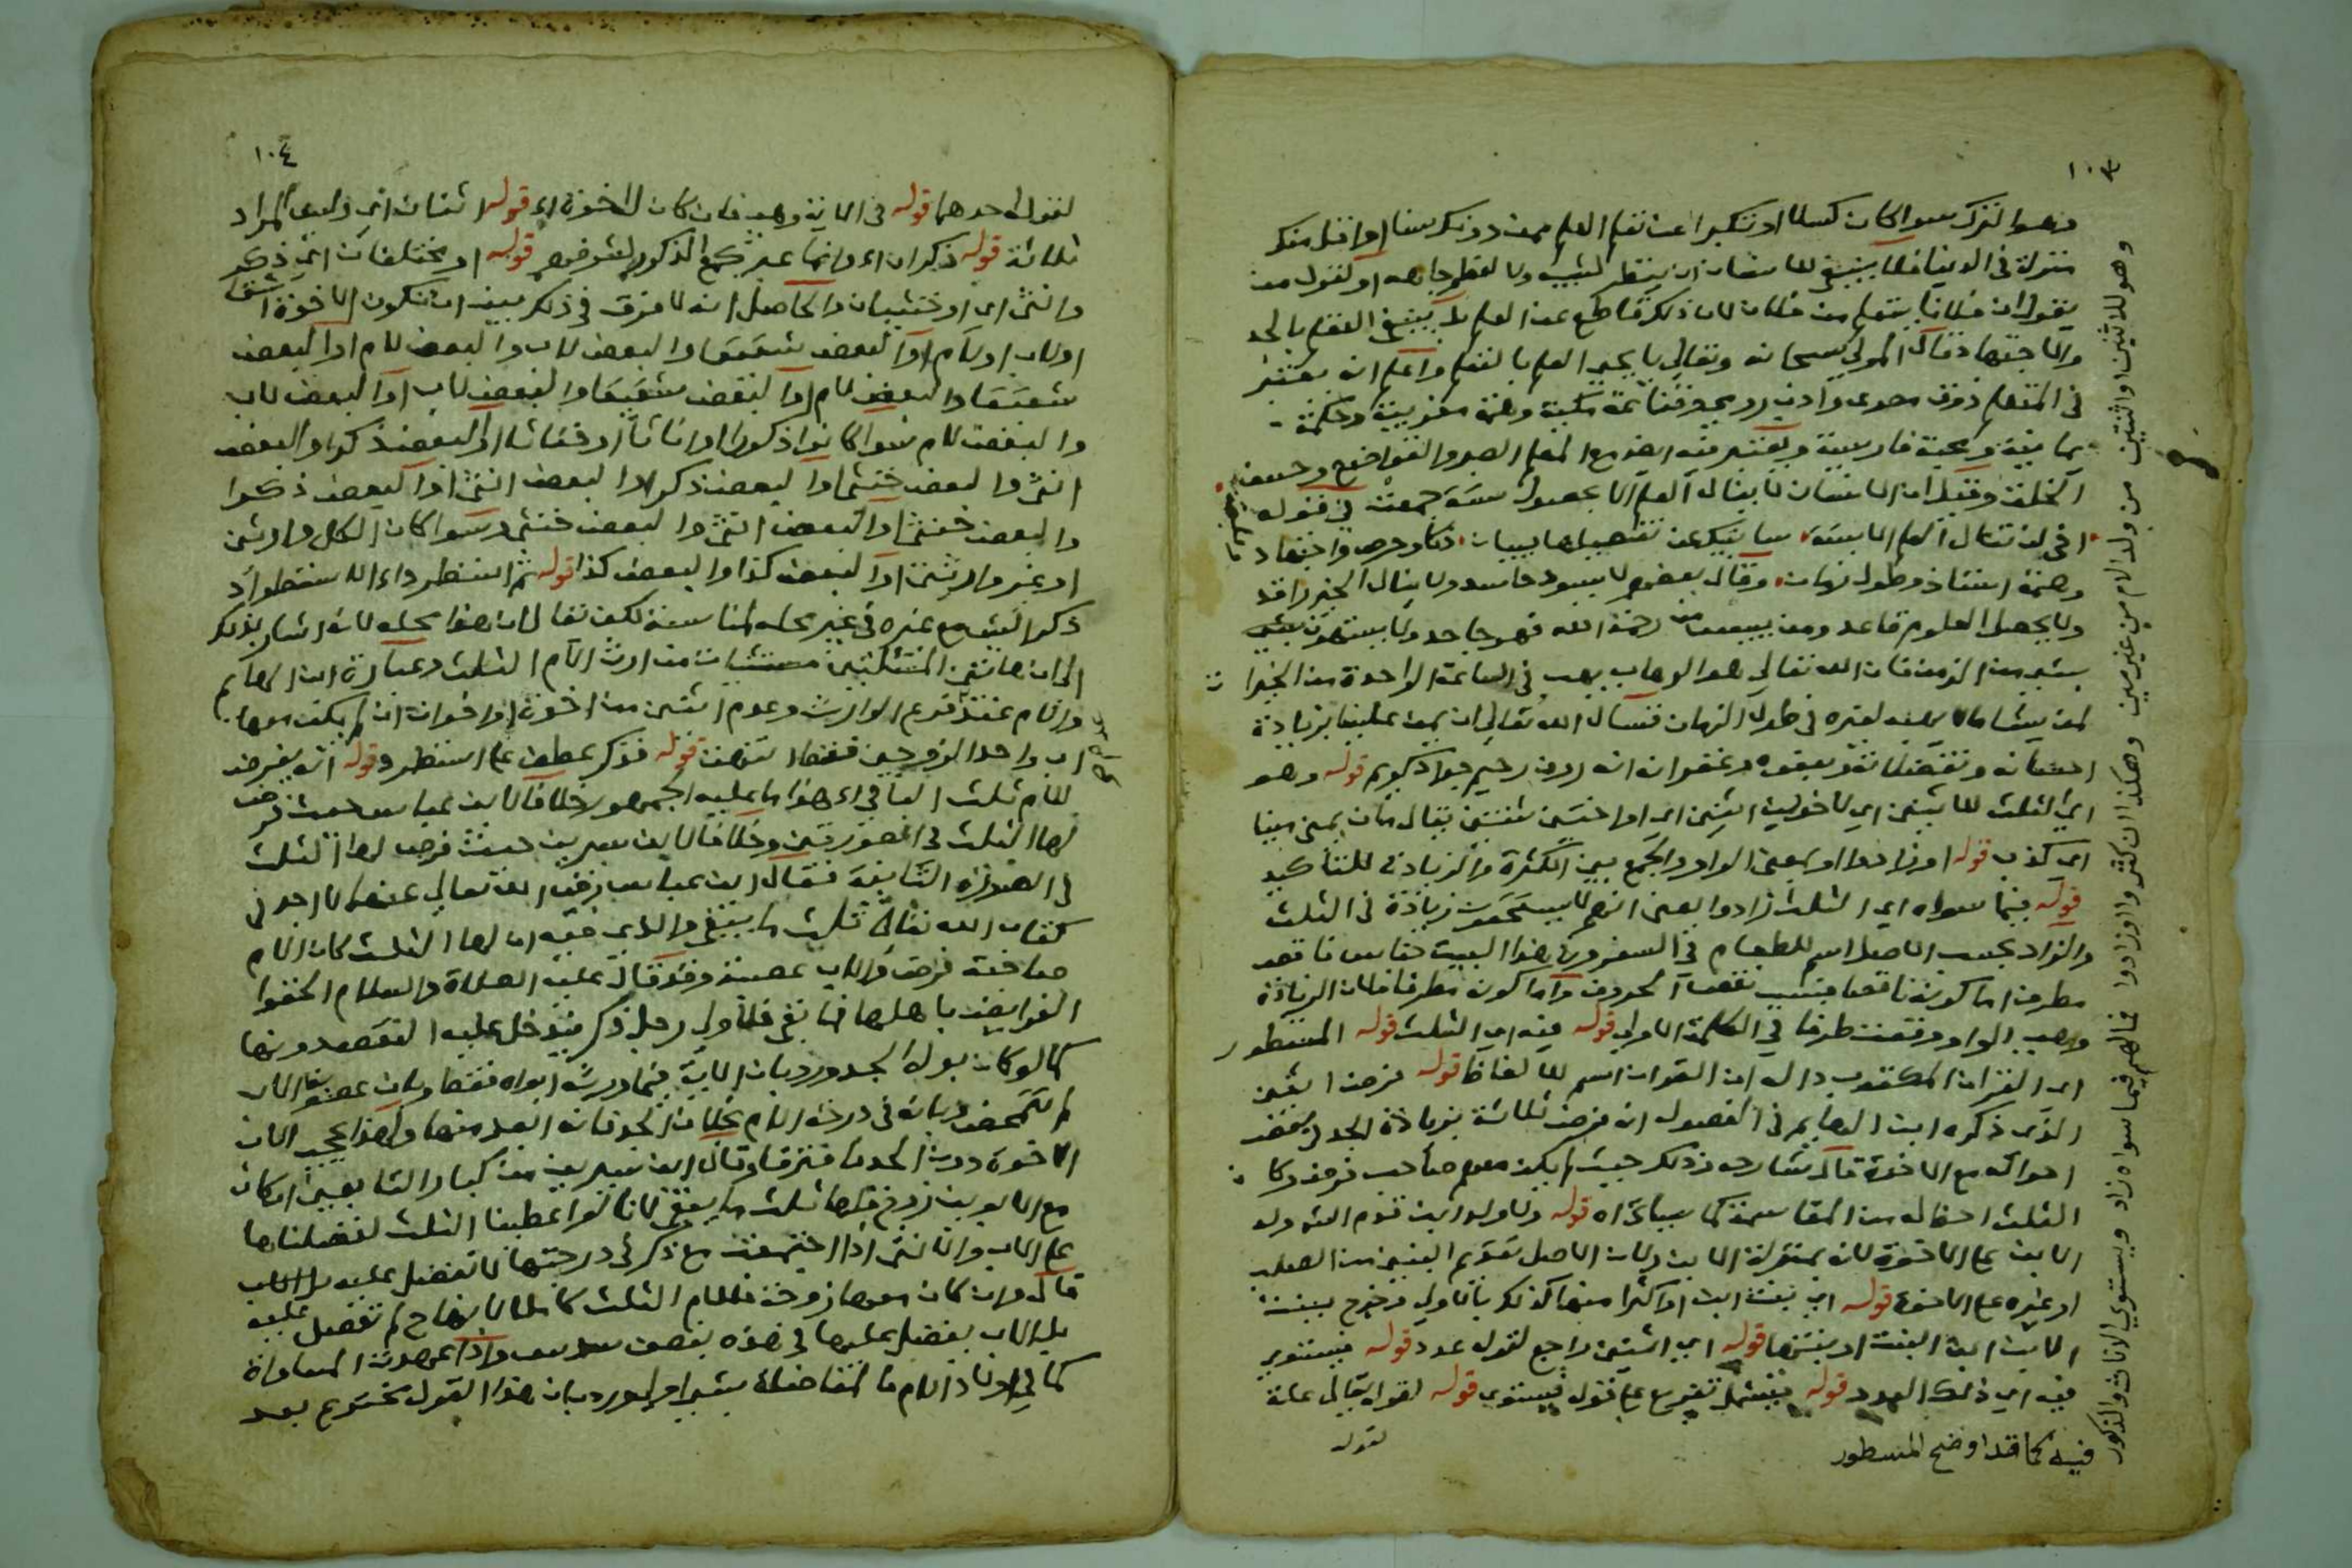 ١٠٣
وهو الترك سواء كان كسلا او تكبرا عن تعلم العلم ممن دونك سنا او اقل منك
منزلة في الدنيا فلا ينبغي للانسان ان ينظر لشيب ولا لعظم جاهه او لقول من
يقول ان فلانا يتعلم من فلان لان ذلك قاطع عن العلم بل ينبغي التعلم بالجد
والاجتهاد قال المولى سبحانه وتعالى يا يحيى العلم بالتعلم واعلم انه يعتبر
في المتعلم ذوق
الخلق وقيل ان الانسان لا ينال العلم الا بحصول ستة جمعت في قوله
اخي لن تنال العلم الا بستة سانبيك عن تفصيلها ببيان ذكاء وحرص واجتهاد
وصحبة استاذ وطول زمان وقال بعضهم لا يسود حاسد ولا ينال الخير راقد
ولا يحصل العلوم قاعد ومن ييئس من رحمة الله فهو جاحد ولا يستهون بشيء
يسير من الزمن فان الله تعالى هو الوهاب يهب في الساعة الواحدة من الخيرات
لمن يشاء ما لا يهبه لغيره في طول الزمان فنسال الله تعالى ان يمن علينا بزيادة
احسانه وتفضلاته وبعفوه وغفرانه انه رؤف رحيم جواد كريم قوله وهو
اي الثلث للاثنين اي لاخوين اثنين اي او اختين ثنتين يقال مان يمين مينا
اي كذب قوله او زادوا او بمعنى الواو والجمع بين الكثرة والزيادة للتأكيد
قوله فيما سواه اي الثلث زادوا بمعنى انهم لا يستحقون زيادة في الثلث
والزاد بحسب الاصل اسم للطعام في السفر وفي هذا البيت جناس ناقص
مطرف اما كونه ناقصا فبسبب نقص الحروف واما كونه مطرفا فلان الزيادة
وهي الواو وقعت طرفا في الكلمة الاولى قوله فيه اي الثلث قوله المسطور
اي القران المكتوب دال ان القران اسم للالفاظ قوله فرض اثنين
الذي ذكره ابن الهايم في الفصول ان فرض ثلاثة بزيادة الجد في بعض
احواله مع الاخوة قال شارحه وذلك حيث لم يكن معهم صاحب فرض وكان
الثلث احظ له من المقاسمة كما سيأتي اه قوله ولا ولد ابن قدم الشرولد
الابن على الاخوة لانه بمنزلة الابن ولان الاصل تقديم البنين من الصلب
او غيره على الاخوة قوله اي بنت ابن او اكثر منها كذلك بالاولى وخرج ببنت
الابن ابن البنت او بنتها قوله اي اثنين راجع لقوله عدد قوله فيستوي
فيه اي ذلك العدد قوله فيشمل تفريع على قوله فيستوي قوله لقوله تعالى علة
لقوله
وهو للاثنين واثنتين من ولد الام من غير مين وهكذا ان كثروا او زادوا فما لهم فيما سواه زاد ويستوي الاناث والذكور
فيه كما قد اوضح المسطور
١٠٤
لقوله احدهما قوله في الاية وهي فان كان له اخوة اه قوله اثنان اي وليس المراد
ثلاثة قوله ذكران اه وانما عبر بجمع الذكور لشرفهم قوله او مختلفان اي ذكر
وانثى اي او خنثيان والحاصل انه لا فرق في ذلك بين ان تكون الاخوة اشقا
او لاب او لام او البعض شقيقا والبعض لاب والبعض لام او البعض
شقيقا والبعض لام او البعض شقيقا والبعض لاب او البعض لاب
والبعض لام سواء كانوا ذكورا او اناثا او خناثا او البعض ذكرا والبعض
انثى والبعض خنثى او البعض ذكرا والبعض انثى او البعض ذكرا
والبعض خنثى او البعض انثى والبعض خنثى وسواء كان الكل وارثين
او غير وارثين او البعض كذا والبعض كذا قوله ثم استطرد اه الاستطراد
ذكر الشيء مع غيره في غير محله لمناسبة لكن يقال ان هذا محله لانه اشار بذلك
الى ان هاتين المسئلتين مستثنيان من ارث الام الثلث وعبارة ابن الهايم
والام عند فقد فرع الوارث وعدم اثنين من اخوة او اخوات ان لم يكن معها
اب واحد الزوجين فقط انتهت قوله فذكر عطف على استطرد قوله انه يفرض
للام ثلث الباقي اه هذا ما عليه الجمهور خلافا لابن عباس حيث فرض
لها الثلث في الصورتين وخلافا لابن سيرين حيث فرض لها الثلث
في الصورة الثانية فقال ابن عباس رضي الله تعالى عنهما لا اجد في
كتاب الله تعالى ثلث ما يبقى والذي فيه ان لها الثلث كان الام
صاحبة فرض والاب عصبة وقد قال عليه الصلاة والسلام الحقوا
الفرايض باهلها فما بقي فلاولى رجل ذكر فيدخل عليه النقص دونها
كما لو كان بدله الجد ورد بان الاية فيما ورثه ابواه فقط وبان عصوبة الاب
لم تتمحض وبانه في درجة الام بخلاف الجد فانه ابعد منها ولهذا يحجب الاب
الاخوة دون الجد فافترقا وقال ابن سيرين من كبار التابعين ان كان
مع الابوين زوج فلها ثلث ما يبقى لانا لو اعطينا الثلث لفضلناها
على الاب والانثى اذا اجتمعت مع ذكر في درجتها لا تفضل عليه
قال وان كان معها زوجة فللام الثلث كاملا لانها ح لم تفضل عليه
بل الاب يفضل عليها في هذه بنصف سدس واذا عهدت المساواة
كما في اولاد الام فالمفاضلة بشيء اولى ورد بان هذا القول مخترع بعد